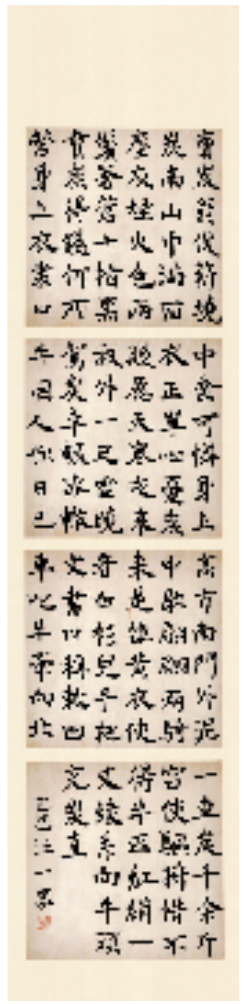 賣炭翁伐薪燒
炭南山中滿面
塵灰煙火色兩
鬢蒼蒼十指黑
賣炭得錢何所
營身上衣裳口
中食可憐身上
衣正單心憂炭
賤愿天寒夜來
城外一尺雪曉
駕炭車輾冰轍
牛困人飢日已
高市南門外泥
中歇翩翩兩騎
來是誰黃衣使
者白衫兒手把
文書口稱敕回
車叱牛牽向北
一車炭千余斤
宮使驅將惜不
得半匹紅綃一
丈綾系向牛頭
充炭直
乙巳汪一